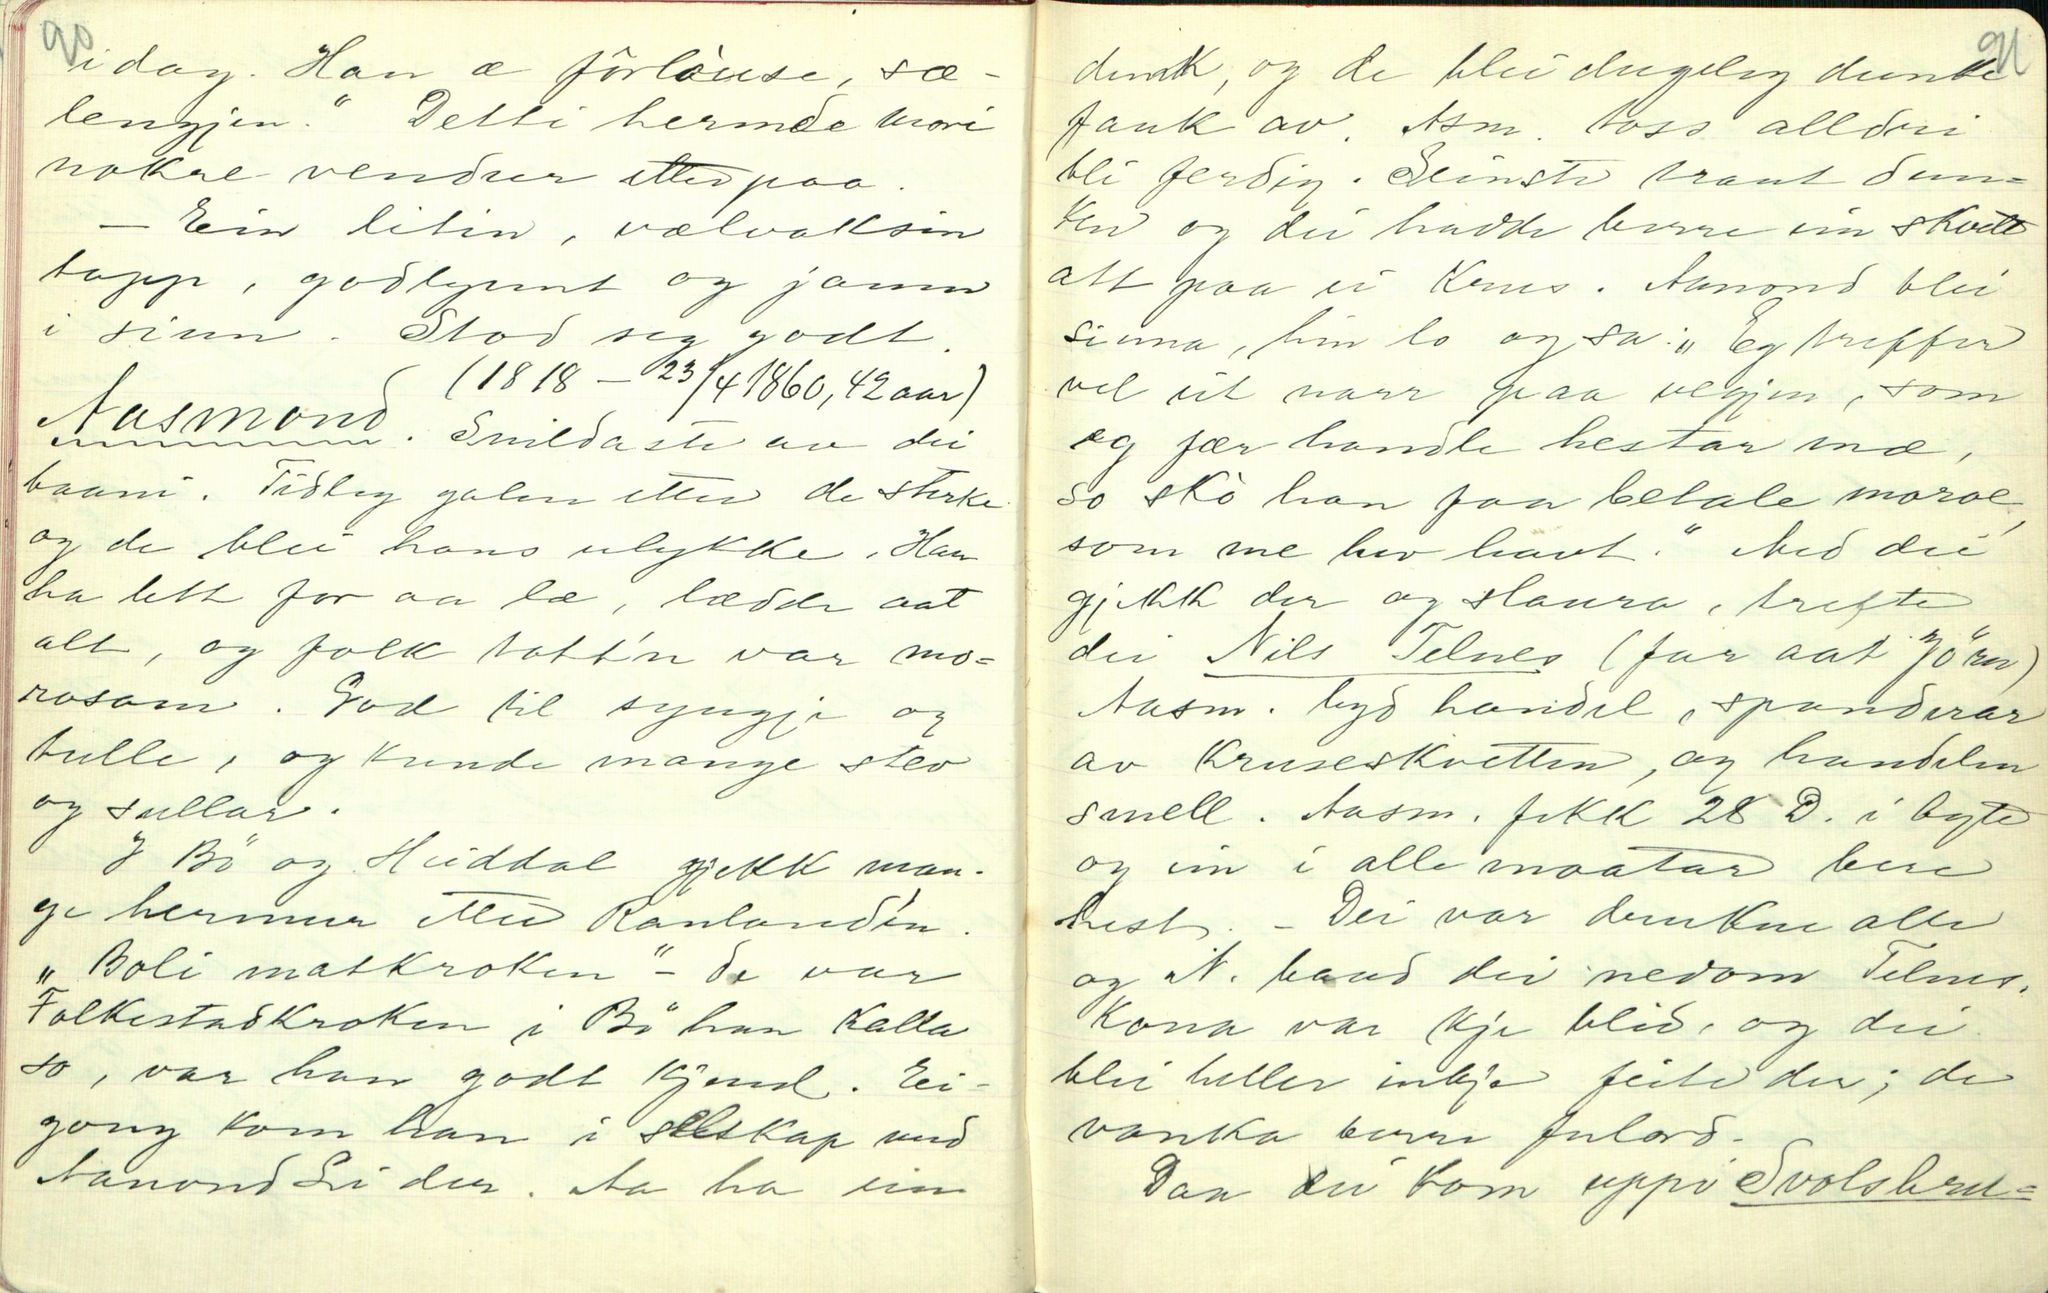 90
idag. Han æ fôrlòuse, sæ-
lengjen." Detti hermde mori
nokre vendur etterpaa.
— Ein litin, vælvaksin
tapp, godlyent og jamn
i sinn. Stod seg godt.
(1818 — 23/4 1860, 42 aar)
Aasmond. Snildaste av dei
baani. Tidleg galen etter de sterke
og de blei hans ulykke. Han
ha lett for aa læ, lædde aat
alt, og folk tott'n var mo-
rosam. God til syngje og
tulle, og kunde mange stev
og sullar.
I Bö og Heiddal gjekk man-
ge hermur etter Ranlandin.
„Boli matkroken" – de var
Folkestadkroken i Bö han kalla
so, var han godt kjend. Ei-
gong kom han i selskap med
Aanond Li der. Aa ha ein
91
dunk, og de blei dugeleg dunke
fank av. Asm. toss alldri
bli ferdig. Seinste traut dun-
ken og dei hadde berre ein skvett
att paa ei krus. Aanond blei
sinna, hin lo og sa: „Eg treffer
vel eit narr paa vegjen, som
eg fær handle hestar mæ,
so skò han faa betale moroe,
som me hev havt." Med dei
gjekk der og slaura, trefte
dei Nils Telnes (far aat Jörn)
Aasm. byd handel, spanderar
av kruseskvetten, og handelen
smell. Aasm. fekk 28 D. i byte
og ein i alle maatar bere
hest. – Dei var drukne alle
og N. baud dei nedom Telnes.
Kona var kje blid, og dei
blei heller inkje feite der; de
vanka berre fulord.
Daa dei kom uppi Svolsbru-